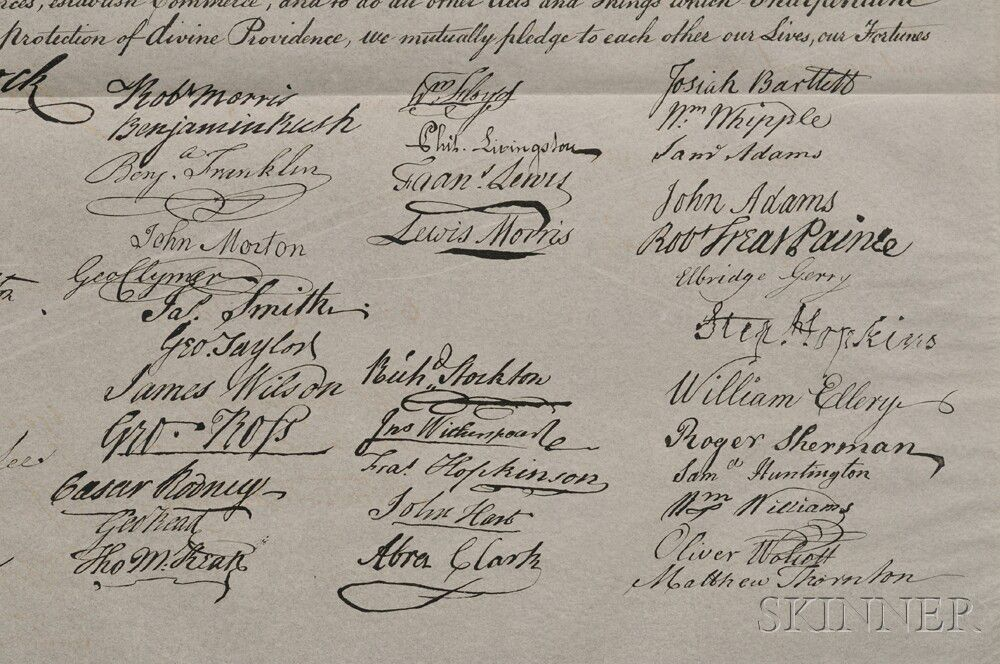 establish Commerce, and to do all other Acts and Things which Independent
protection of divine Providence, we mutually pledge to each other our Lives, our Fortunes
Robt Morris
Benjamin Rush
Benja. Franklin
John Morton
Geo Clymer
Jas. Smith
Geo. Taylor
James Wilson
Geo. Ross
Caesar Rodney
Geo Read
Tho M:Kean
Wm Floyd
Phil. Livingston
Frans. Lewis
Lewis Morris
Richd. Stockton
Jno Witherspoon
Fras. Hopkinson
John Hart
Abra Clark
Josiah Bartlett
Wm Whipple
Saml Adams
John Adams
Robt Treat Paine
Elbridge Gerry
Step. Hopkins
William Ellery
Roger Sherman
Samel Huntington
Wm Williams
Oliver Wolcott
Matthew Thornton
SKINNER